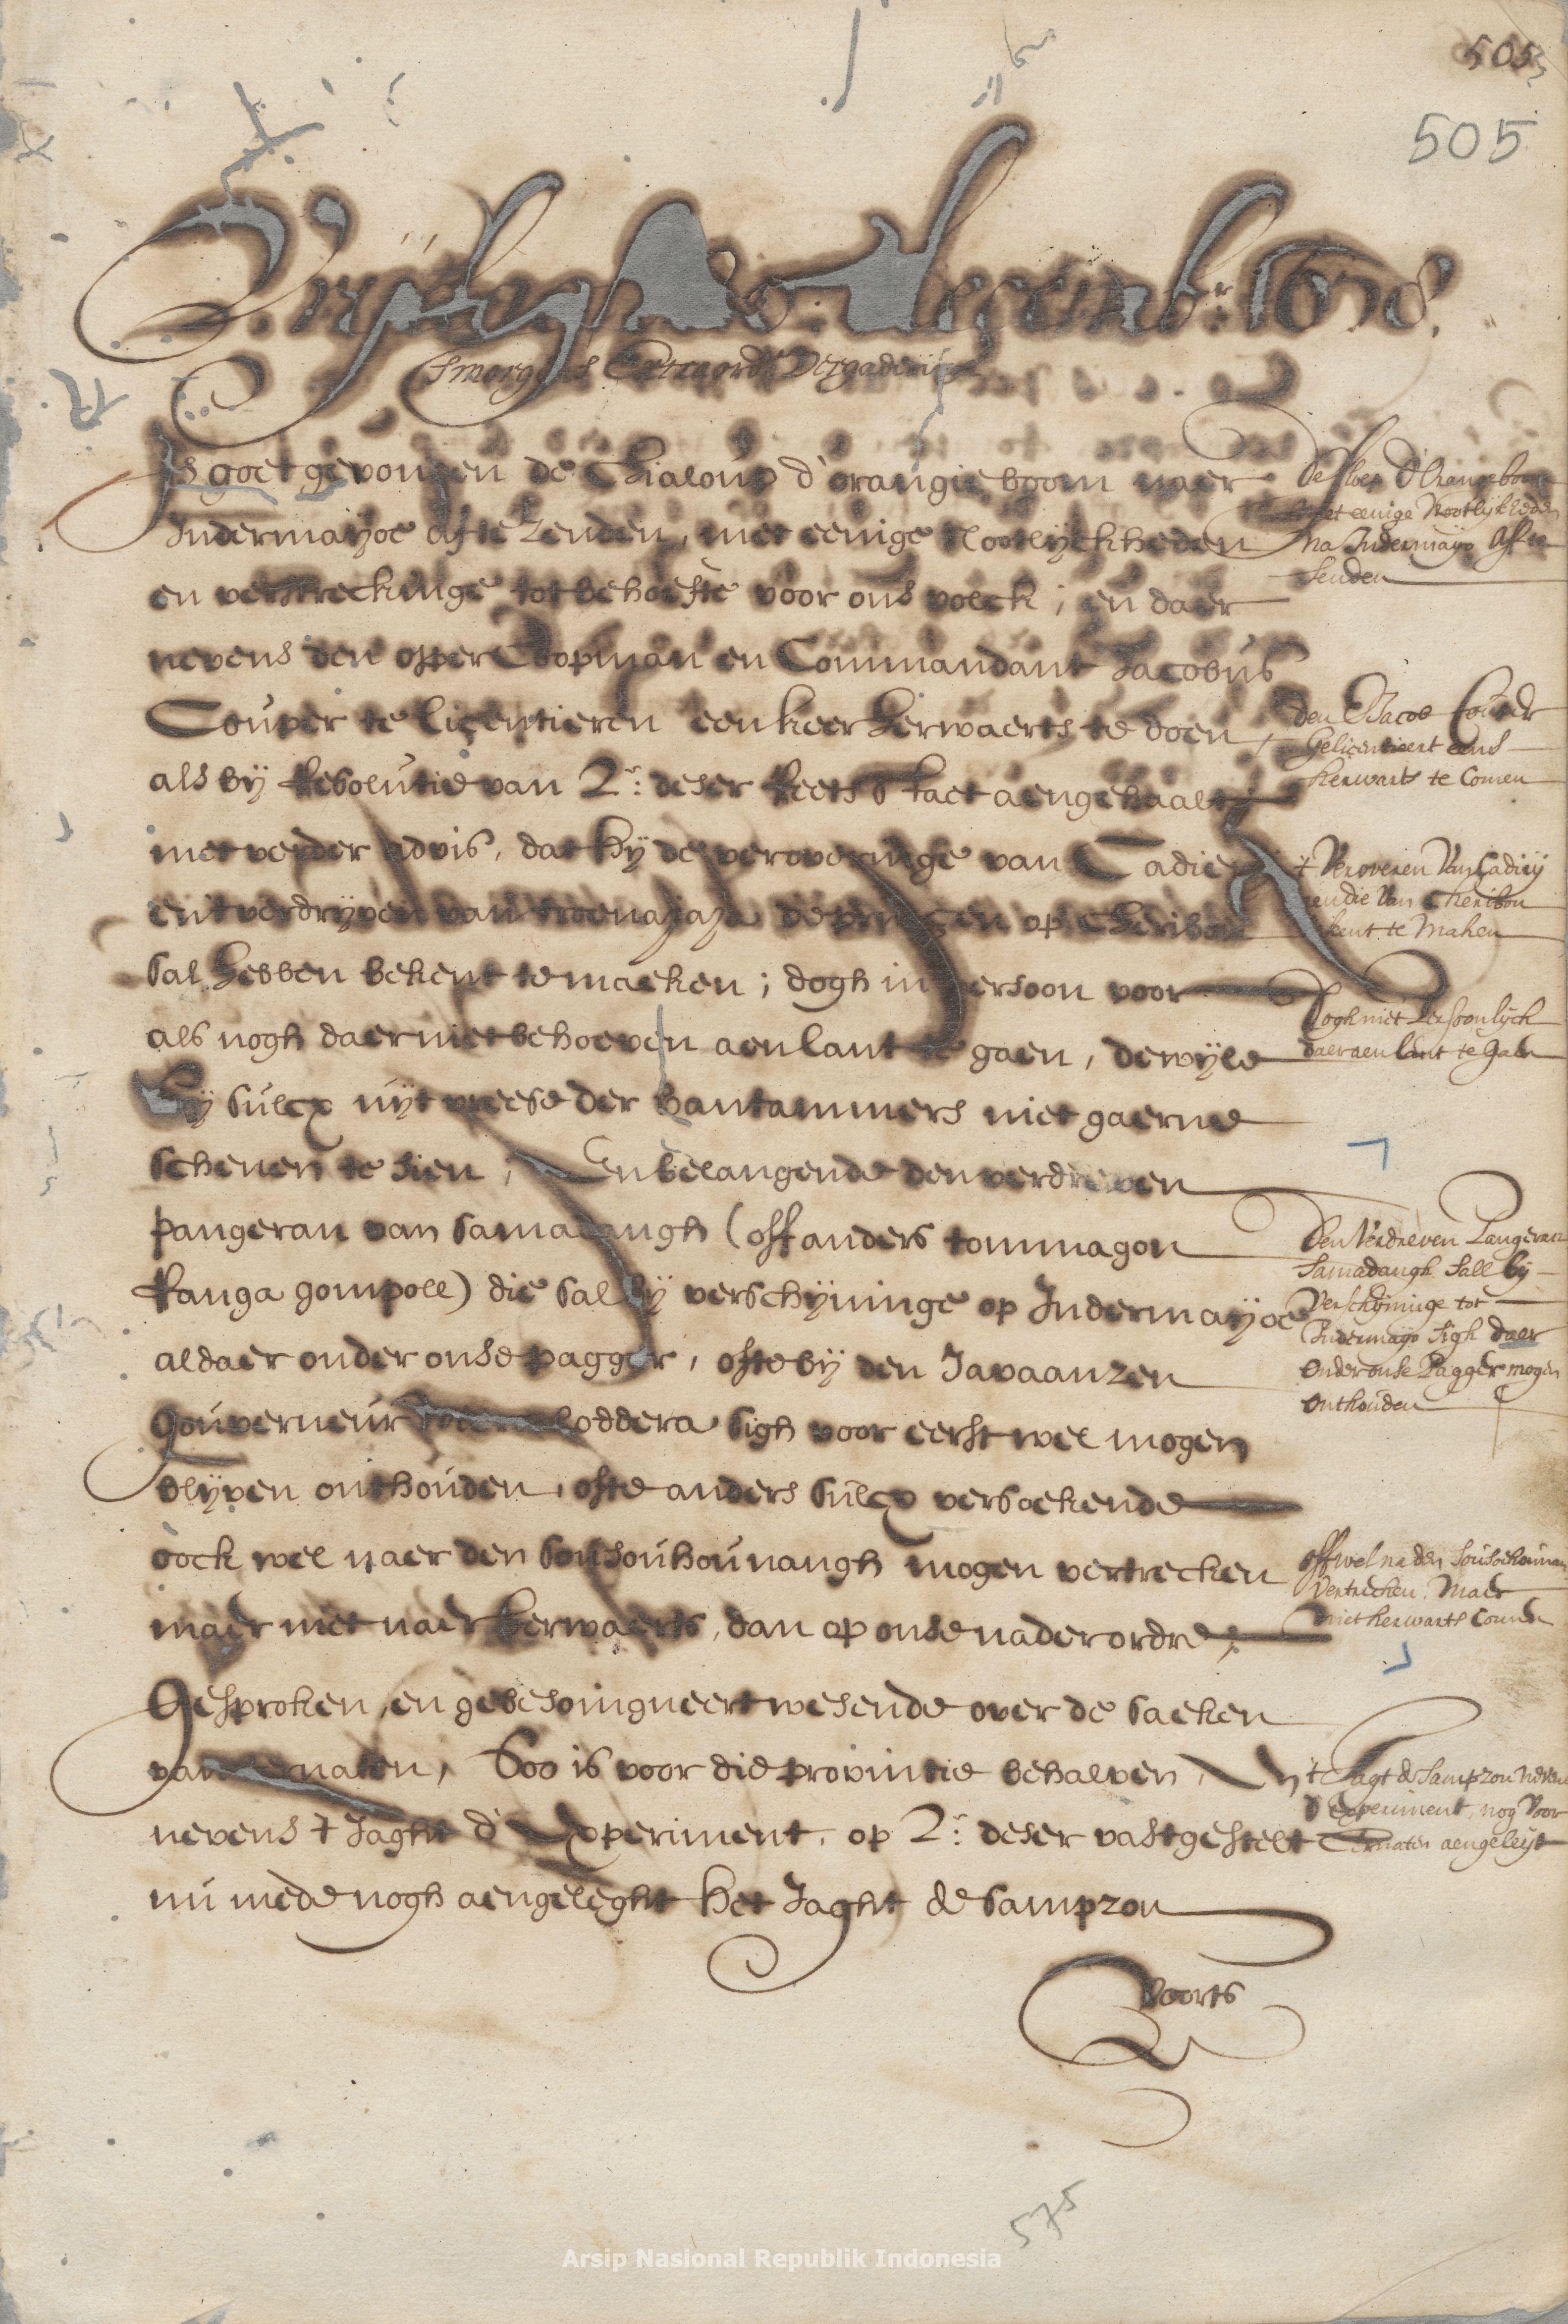 505
505
Vrijdagh decemb:r 1678.
Smorgens Extraord.e Vergaderinge
Is goet gevonden de Chialoup d'orangieboom naer
Indermayoe af te zenden, met eenige nootlyckheden
en verstreckinge tot behoefte voor ons volck; en daer
nevens den opper Coopman en Commandant Jacobus
Couper te licentieren een keer herwaerts te doen,
als by Resolutie van 2:n deser Reets is aengehaalt
met verder advis, dat hy de veroveringe van Cadierij
en 't verdryven van troenajaja de princen op Cheribon
sal hebben bekent te maeken; dogh in persoon voor
als nogh daer niet behoeven aen lant te gaen, dewyle
hy sulcx uyt vreese der bantammers niet gaerne
schenen te sien, En belangende den verdreven
pangeran van Samadangh (off anders tommagon
Ranga gompoll) die sal by verschyninge op Indermayoe
aldaer onder onse pagger, ofte by den Javaanzen
gouverneur loddera sigh voor eerst wel mogen
blyven onthouden, ofte anders sulcx versoekende
oock wel naer den Sousouhounangh mogen vertrecken
maer niet naer herwaerts, dan op onse nader ordre;
Gesproken, en gebesoingneert wesende over de saeken
van Ternaten, Soo is voor die provintie behalven,
nevens 't Jaght d'Experiment, op 2:n deser vastgestelt
nu mede nogh aengeleght het Jaght de Sampzon
Voorts
De sloep d'Orangeboom
met eenige Nootlykheden
na Indermayo aff te
senden
den E Jacob Couper
Gelicentieert eens
herwarts te Comen
't Veroveren van Cadirij
aen die van Cheribon
bekent te Maken
Dogh niet Persoonlyck
daer aen lant te gaen
Den Verdreven Pangeran
Samadangh sall by
Verschyninge tot
Indermayo sigh daer
onder onse Pagger mogen
onthouden
off wel na den Sousouhounan
Vertrecken, Maer
niet herwarts Comen
't Jagt de Sampzon nevens
d'Experiment, nog voor
Ternaten aengeleyt
575
Arsip Nasional Republik Indonesia